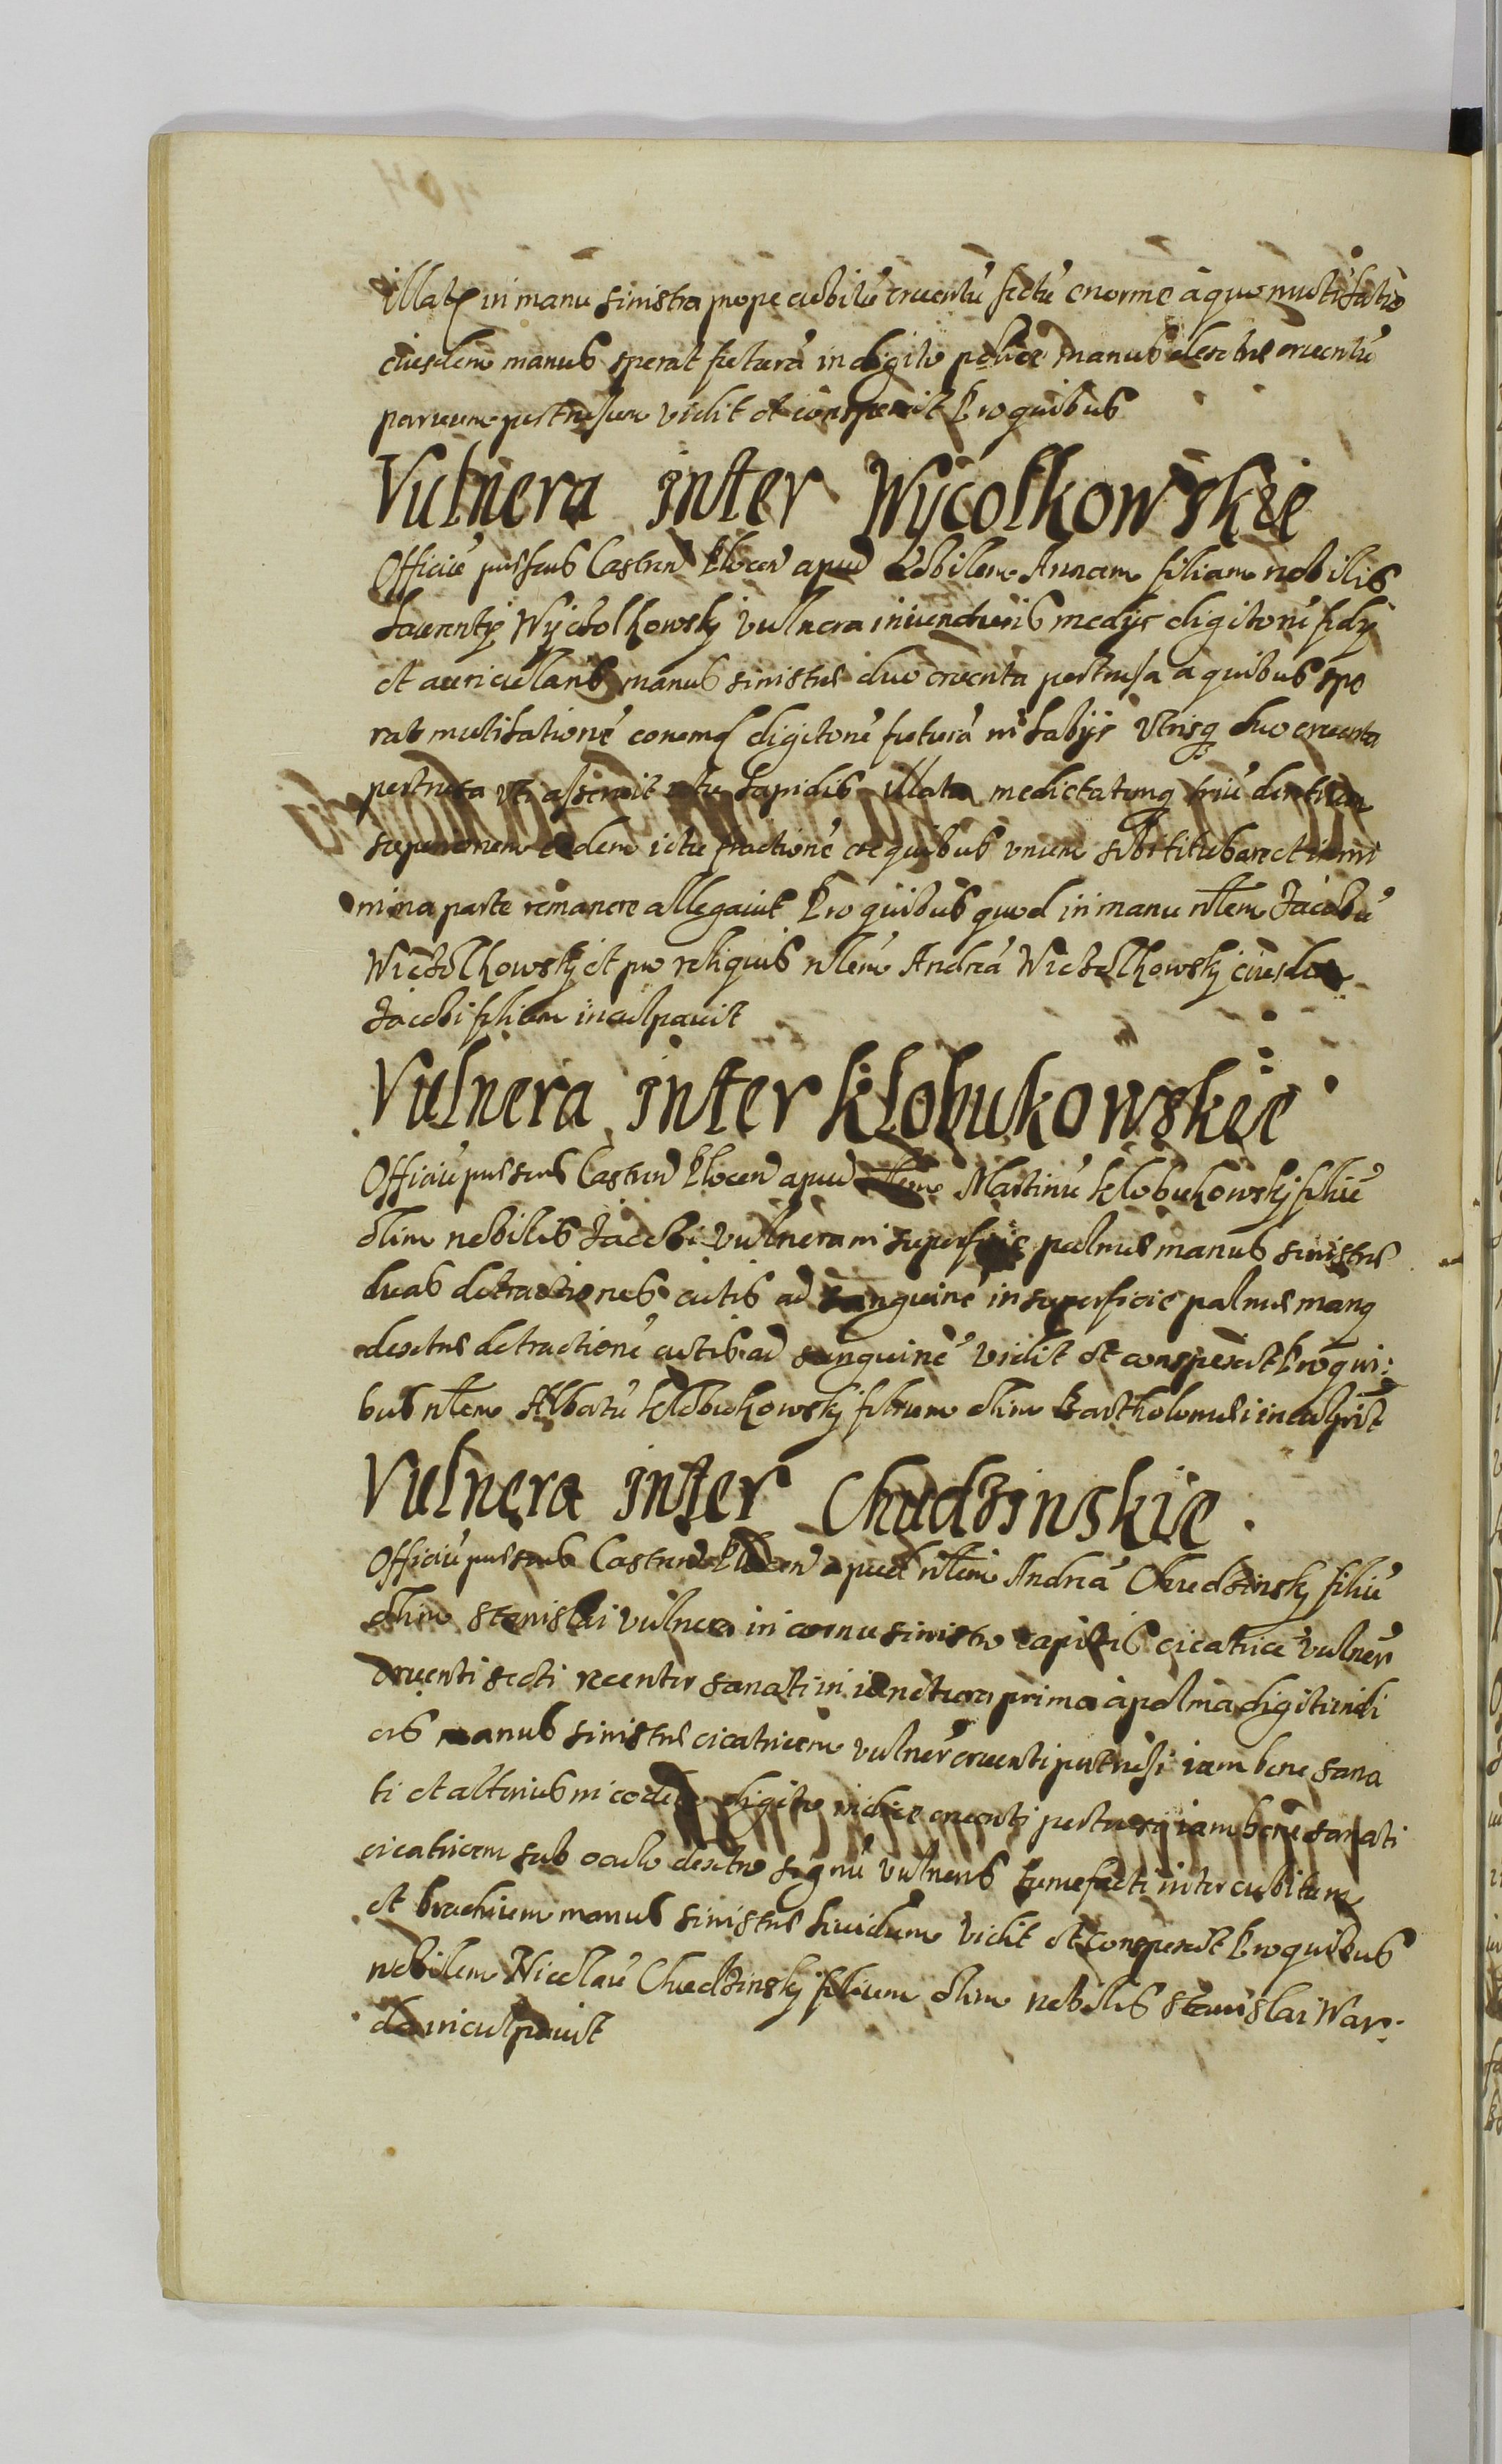 illatū in manu sinistra prope cubitū cruentū sectū enorme a quo mutilatio
eiusdem manus sperat futurā in digito police manus dextræ cruentū
parvum pertusum vidit et conspexit Pro quibus
Vulnera inter Wycolkowskie
Officiū præsens Castren Plocen apud Nobilem Annam filiam nobilis
Laurentÿ Wycolkowskj vulnera in iuncturis medÿs digitorū
et auricularis manus sinistræ duo cruenta pertusa a quibus spe
rat mutilationē eorumq digitorū futurā in labÿs utrisq duo cruenta
pertusa uti asseruit ictu lapidis illata medietatemq triū dentium
superiorum eodem ictu fractionē ex quibus unum sibi titubare et in mi
nima parte remanere allegavit Pro quibus quod in manu nłem Jacobū
Wiecolkowskj et pro reliquis nłem Andreā Wiecolkowskj eiusdem
Jacobi filium inculpavit
Vulnera inter Klobukowskie
Officiū præsens Castren Plocen apud nłem Martinū Klobukowskj filiū
olim nobilis Jacobi vulnera in superficie palmæ manus sinistræ
duas detractiones cutis ad sanguinē in superficie palmæ manq
dextræ detractionē cutis ad sanguinē vidit et conspexit Pro qui:
bus nłem Albertū Klobukowskj filium olim Bartholomæi inculpāit
Vulnera inter Chudzinskie
Officiū præsens Castren Plocen apud nłem Andreā Chudzinskj filiū
olim Stanislai vulnera in cornu sinistro capitis cicatrice vulner
cruenti secti recenter sanati in iunctura prima a palma digiti indi
cis manus sinistræ cicatricem vulner cruenti pertusi iam bene sana
ti et alterius in eodem digito indice cruenti pertusi iam bene sanati
cicatricem sub oculo dextro signū vulneris tumefacti inter cubitum
et brachium manus sinistræ lividum vidit et conspexit Pro quibus
nobilem Nicolaū Chudzinskj filium olim nobilis Stanislai War:
da inculpavit